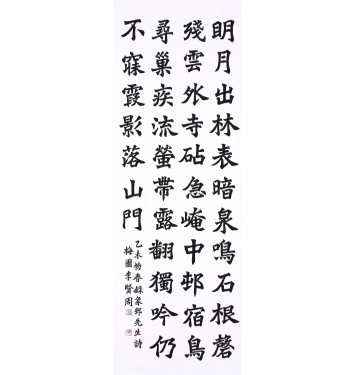 明月出林表暗泉鳴石根磬
殘雲外寺砧急崦中邨宿鳥
尋巢疾流螢帶露翻獨吟仍
不寐霞影落山門
乙未春錄象邨先生詩
梅李賢周